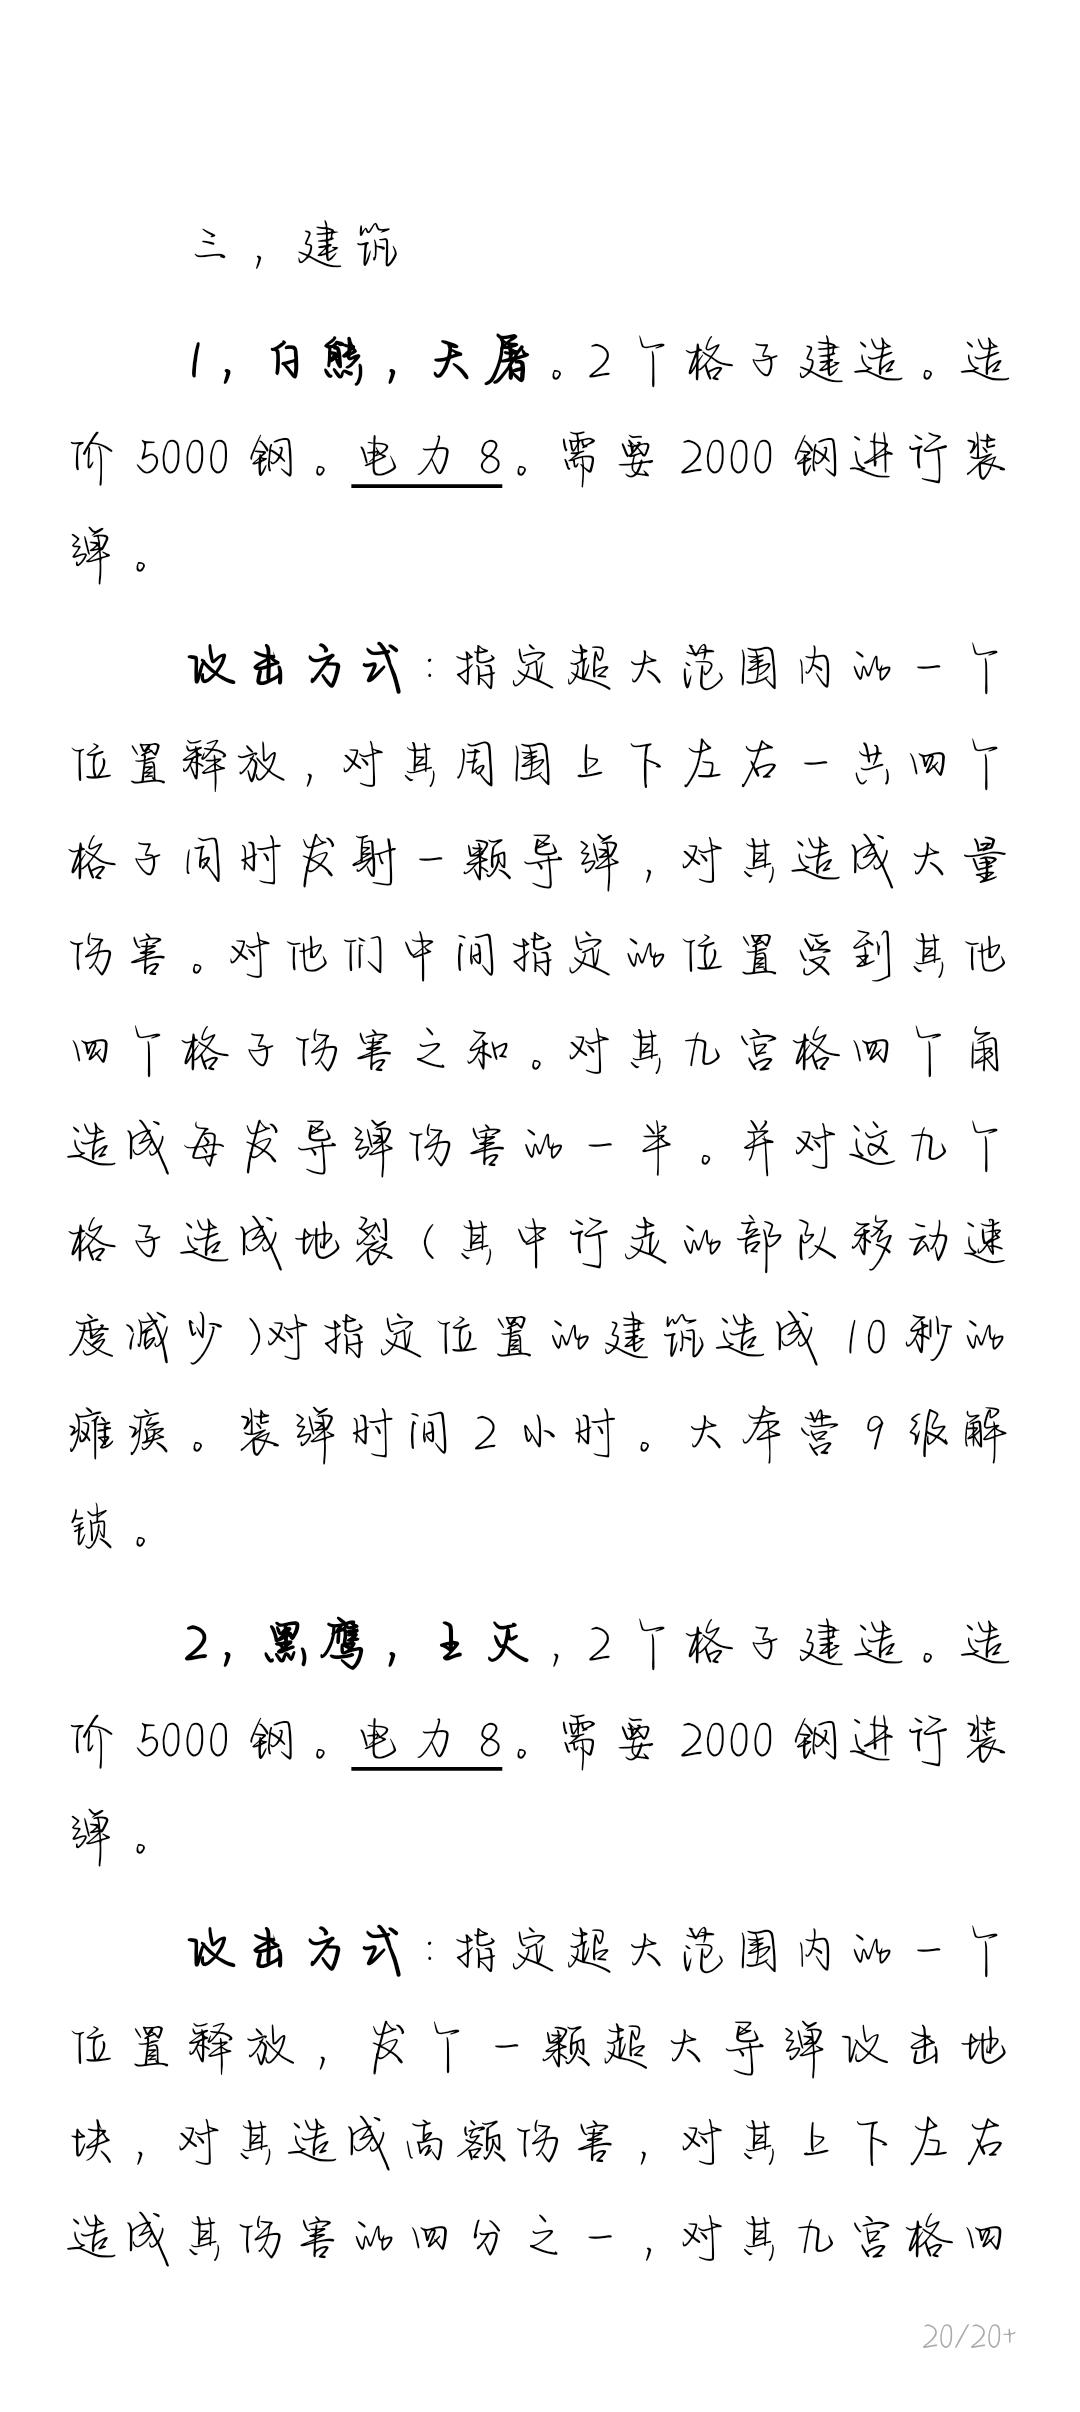 三，建筑
1，白熊，天屠。2个格子建造。造
价5000钢。电力8。需要2000钢进行装
弹。
攻击方式：指定超大范围内的一个
位置释放，对其周围上下左右一共四个
格子同时发射一颗导弹，对其造成大量
伤害。对他们中间指定的位置受到其他
四个格子伤害之和。对其九宫格四个角
造成每发导弹伤害的一半。并对这九个
格子造成地裂（其中行走的部队移动速
度减少）对指定位置的建筑造成10秒的
瘫痪。装弹时间2小时。大本营9级解
锁。
2，黑鹰，王灭，2个格子建造。造
价5000钢。电力8。需要2000钢进行装
弹。
攻击方式：指定超大范围内的一个
位置释放，发个一颗超大导弹攻击地
块，对其造成高额伤害，对其上下左右
造成其伤害的四分之一，对其九宫格四
20/20+